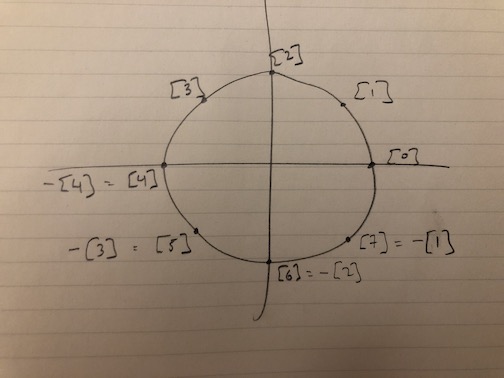 [2]
[3]
[1]
[0]
-[4] = [4]
-[3] = [5]
[7] = -[1]
[6] = -[2]